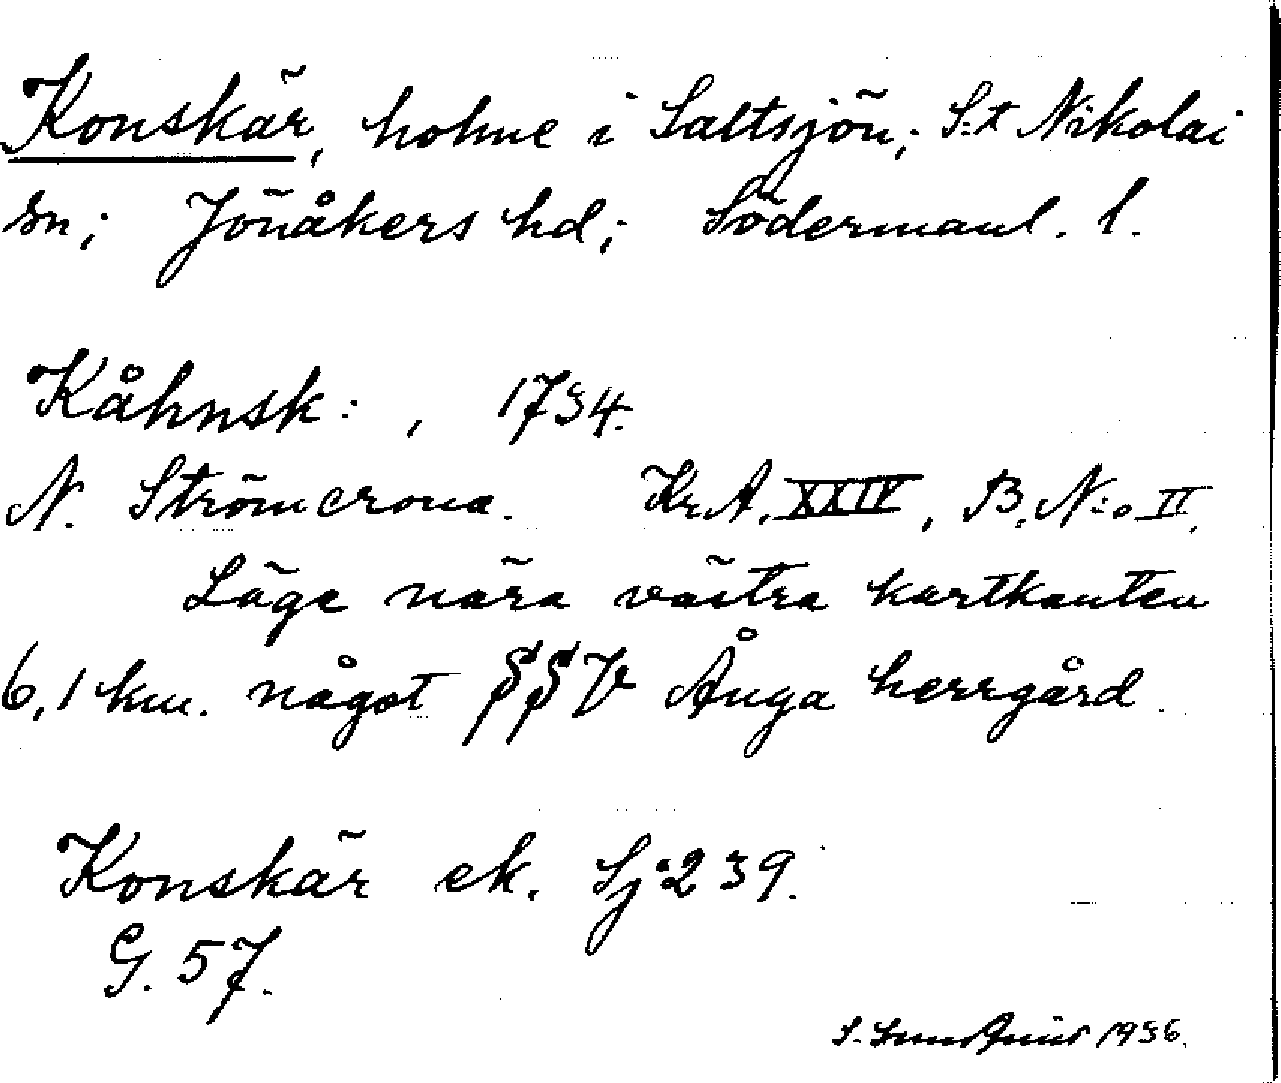 Konskär, holme i Saltsjön; S:t Nikolai
sn; Jönåkers hd; Södermanl. l.
Kåhnsk: , 1734.
N. Strömcrona. Kr.A. XXIV, B. N:o II.
Läge nära västra kartkanten
6,1 km. något SSV Ånga herrgård.
Konskär ek. Sj 239.
G. 57.
S. 1936.